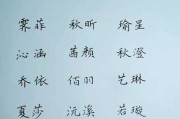 霁菲 秋昕 瑜星
沁涵 茜颜 秋澄
乔依 佰羽 艺琳
夏莎 沅溪 若璇